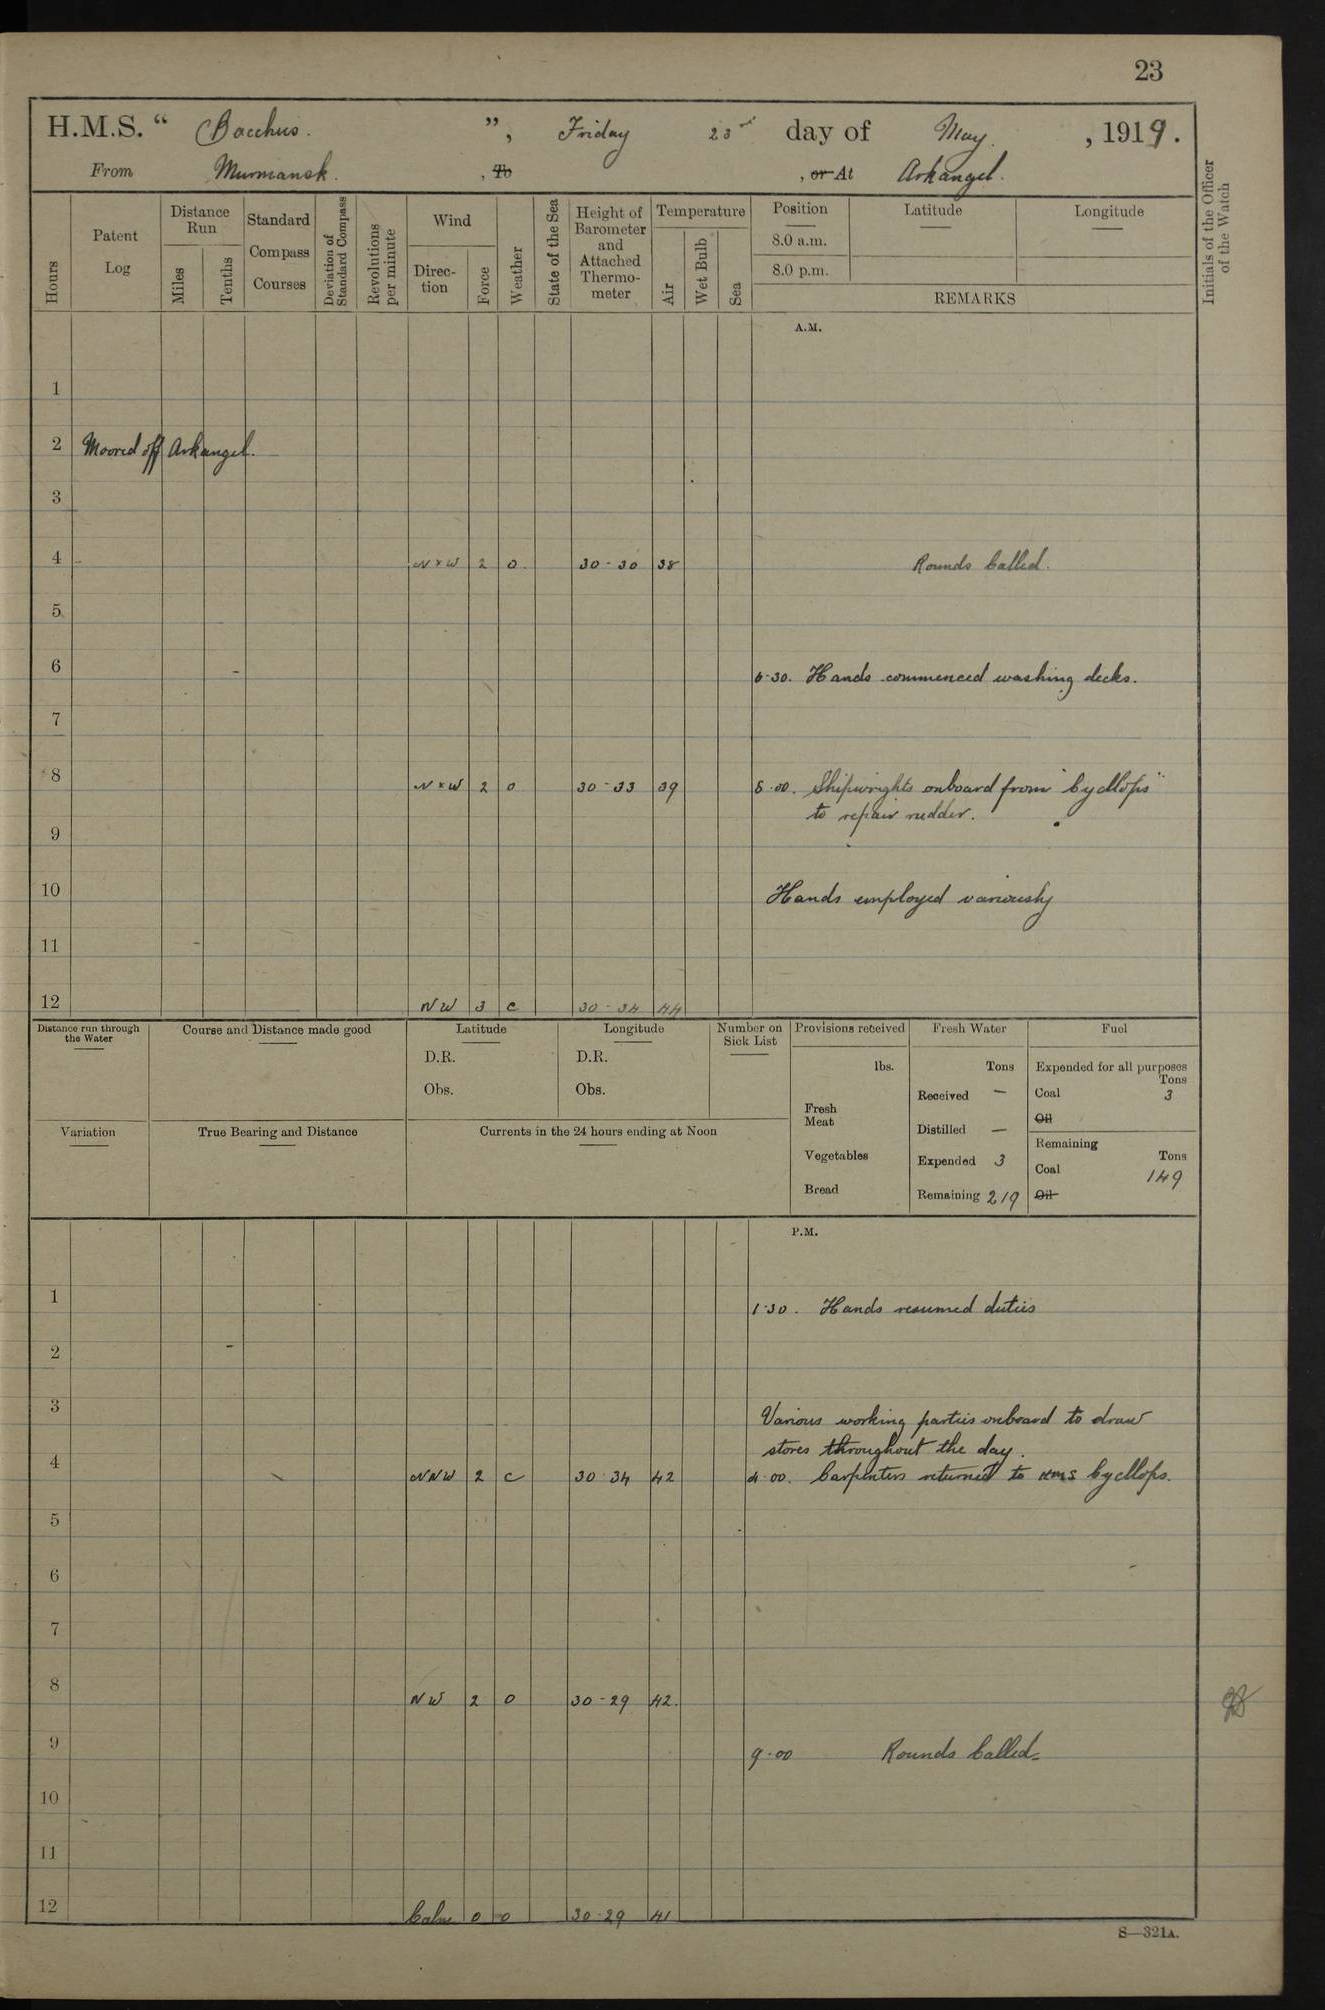 23
H.M.S. “ Bacchus. ”, Friday 23rd day of May. , 1919.
From Murmansk. , To , or At Arkangel.
Hours
Patent Log
Distance Run
Miles
Tenths
Standard Compass Courses
Deviation of Standard Compass
Revolutions per minute
Wind
Direction
Force
Weather
State of the Sea
Height of Barometer and Attached Thermometer
Temperature
Air
Wet Bulb
Sea
Position Latitude Longitude
8.0 a.m.
8.0 p.m.
REMARKS
Initials of the Officer of the Watch
A.M.
1
2 Moored off Arkangel.
3
4 N x W 2 o 30-30 38 Rounds Called.
5
6 6-30. Hands commenced washing decks.
7
8 N x W 2 o 30-33 39 8.00. Shipwrights onboard from "Cycllops"
to repair rudder.
9
10 Hands employed variously
11
12 NW 3 c 30-34 44
Distance run through the Water
Course and Distance made good
Latitude
D.R.
Obs.
Longitude
D.R.
Obs.
Number on Sick List
Provisions received
lbs.
Fresh Meat
Vegetables
Bread
Fresh Water
Tons
Received —
Distilled —
Expended 3
Remaining 219
Fuel
Expended for all purposes
Tons
Coal 3
Oil
Remaining
Tons
Coal 149
Oil
Variation
True Bearing and Distance
Currents in the 24 hours ending at Noon
P.M.
1 1-30. Hands resumed duties
2
3 Various working parties onboard to draw
stores throughout the day.
4 NNW 2 c 30 34 42 4.00. Carpenters returned to HMS Cycllops.
5
6
7
8 NW 2 o 30-29 42.
9 9.00 Rounds Called=
10
11
12 Calm 0 o 30-29 41
S—321A.